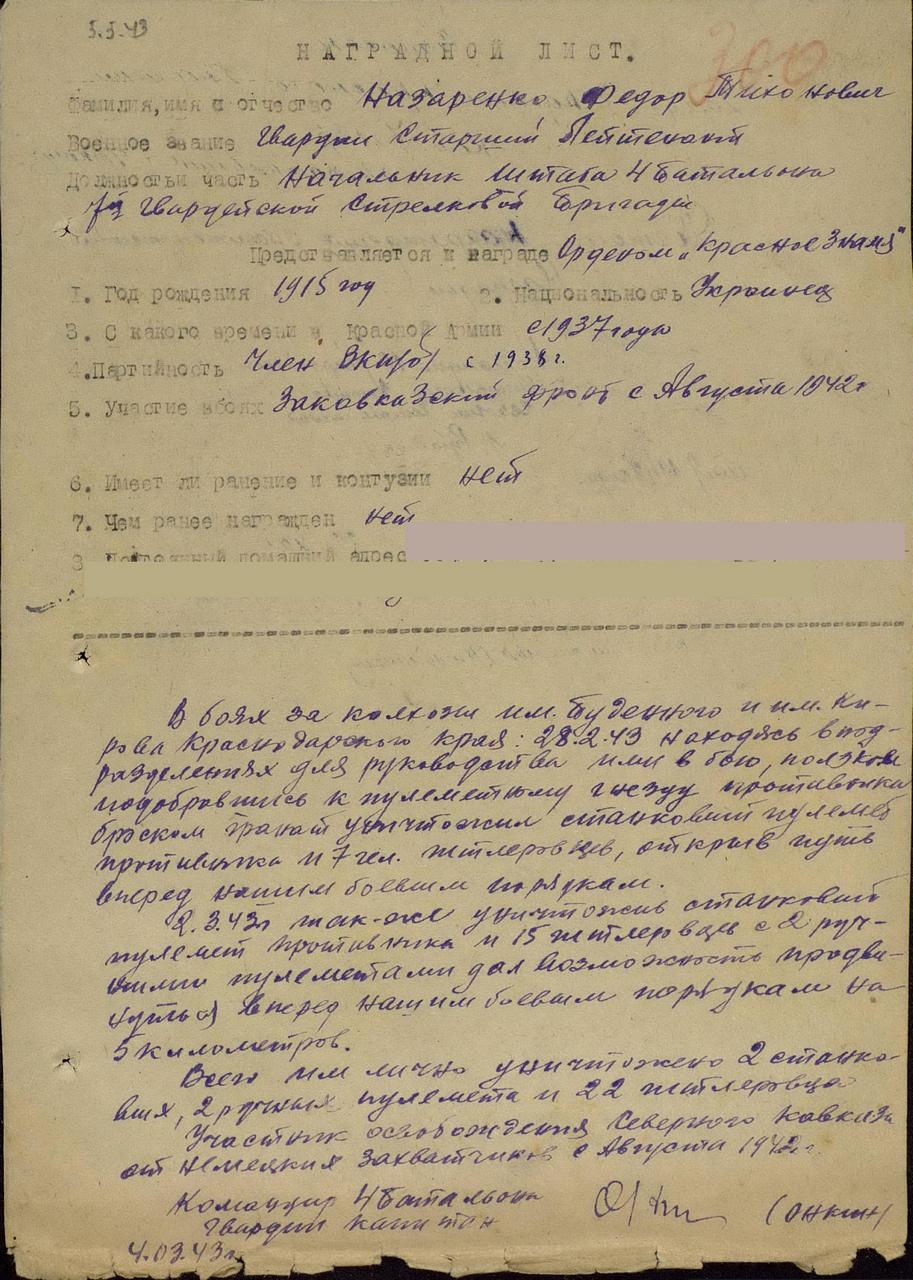 5.5.43
300
НАГРАДНОЙ ЛИСТ.
Фамилия, имя и отчество Назаренко Федор Тихонович
Военное звание Гвардии Старший Лейтенант
Должность и часть Начальник Штаба 4 Батальона
Гвардейской Стрелковой Бригады
Представляется к награде Орденом „Красное Знамя"
1. Год рождения 1915 год 2. Национальность Украинец
3. С какого времени в Красной Армии с 1937 года
4. Партийность Член ВКП(б) с 1938 г.
5. Участие в боях Закавказский фронт с Августа 1942 г
6. Имеет ли ранение и контузии нет
7. Чем ранее награжден нет
8 Постоянный домашний адрес
В боях за колхозы им. Буденного и им. Ки-
рова Краснодарского края: 28.2.43 находясь в под-
разделениях для руководства ими в бою, ползком
подобравшись к пулеметному гнезду противника
броском гранат уничтожил станковый пулемет
противника и 7 чел. гитлеровцев, открыв путь
вперед нашим боевым порядкам.
2.3.43г так-же уничтожив станковый
пулемет противника и 15 гитлеровцев с 2 руч-
ными пулеметами дал возможность продви-
нуться вперед нашим боевым порядкам на
5 километров.
Всего им лично уничтожено 2 станко-
вых, 2 ручных пулемета и 22 гитлеровца
Участник освобождения Северного Кавказа
от немецких захватчиков с Августа 1942 г.
Командир 4 Батальона
Гвардии капитан (Онкин)
4.03.43г.